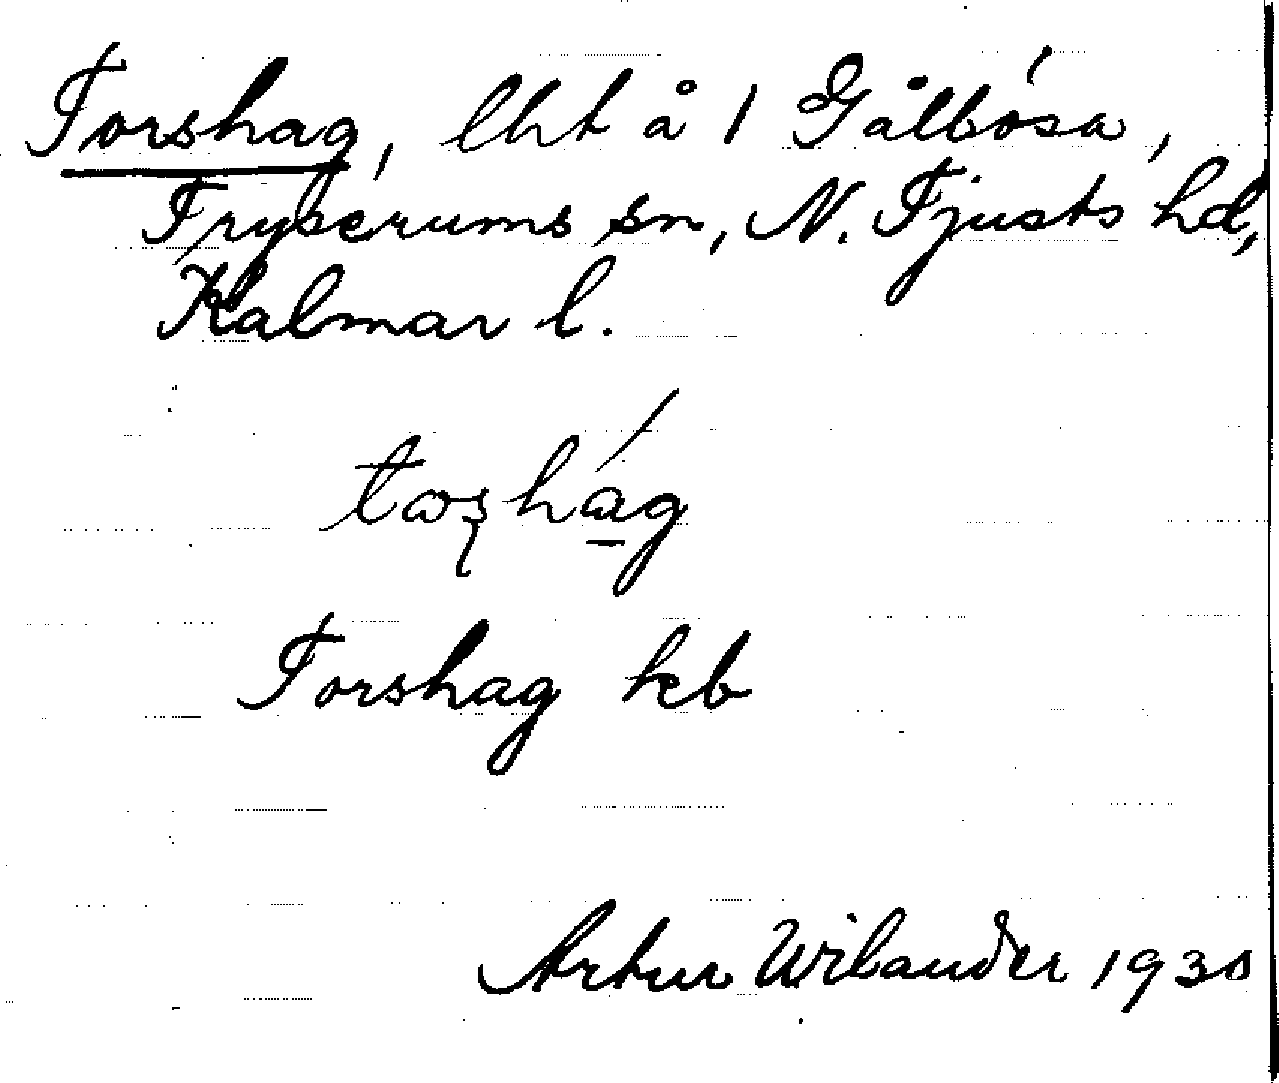 Torshag, lht å 1 Gålbósa,
Tryserums sn, N. Tjusts hd,
Kalmar l.
Torshag kb
Artur Wilander 1930